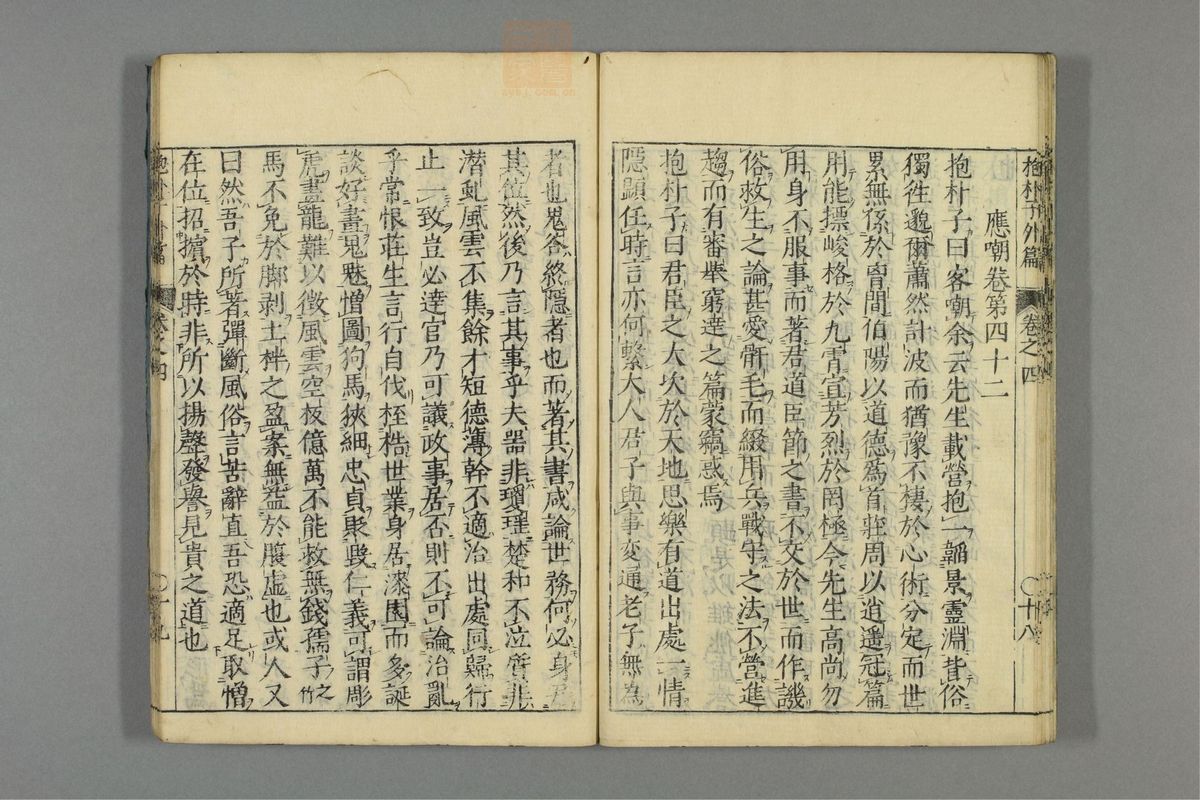 抱朴子外篇 卷之四 〇十八
應嘲卷第四十二
抱朴子曰客嘲余云先生載營抱一韜景靈淵背俗
獨徃邈爾蕭然計波而猶豫不棲於心術分定而世
累無係於胷間伯陽以道德爲首莊周以逍遥冠篇
用能摽峻格於九霄宣芳烈於罔極今先生高尚勿
用身不服事而著君道臣節之書不交於世而作譏
俗救生之論甚愛骭毛而綴用兵戰守之法不營進
趨而有審舉窮達之篇蒙竊惑焉
抱朴子曰君臣之大次於天地思樂有道出處一情
隱顯任時言亦何繫大人君子與事變通老子無爲
者也鬼谷終隱者也而著其書咸論世務何必身居
其位然後乃言其事乎夫器非瓊瑶楚和不泣質非
潜虬風雲不集餘才短德薄幹不適治出處同歸行
止一致豈必達官乃可議政事居否則不可論治亂
乎常恨莊生言行自伐桎梏世業身居漆園而多誕
談好畫鬼魅憎圖狗馬狹細忠貞貶毀仁義可謂彫
虎畫龍難以徵風雲空板億萬不能救無錢孺子之竹
馬不免於脚剥土柈之盈案無益於腹虛也或人又
曰然吾子所著彈斷風俗言苦辭直吾恐適足取憎
在位招擯於時非所以揚聲發譽見貴之道也